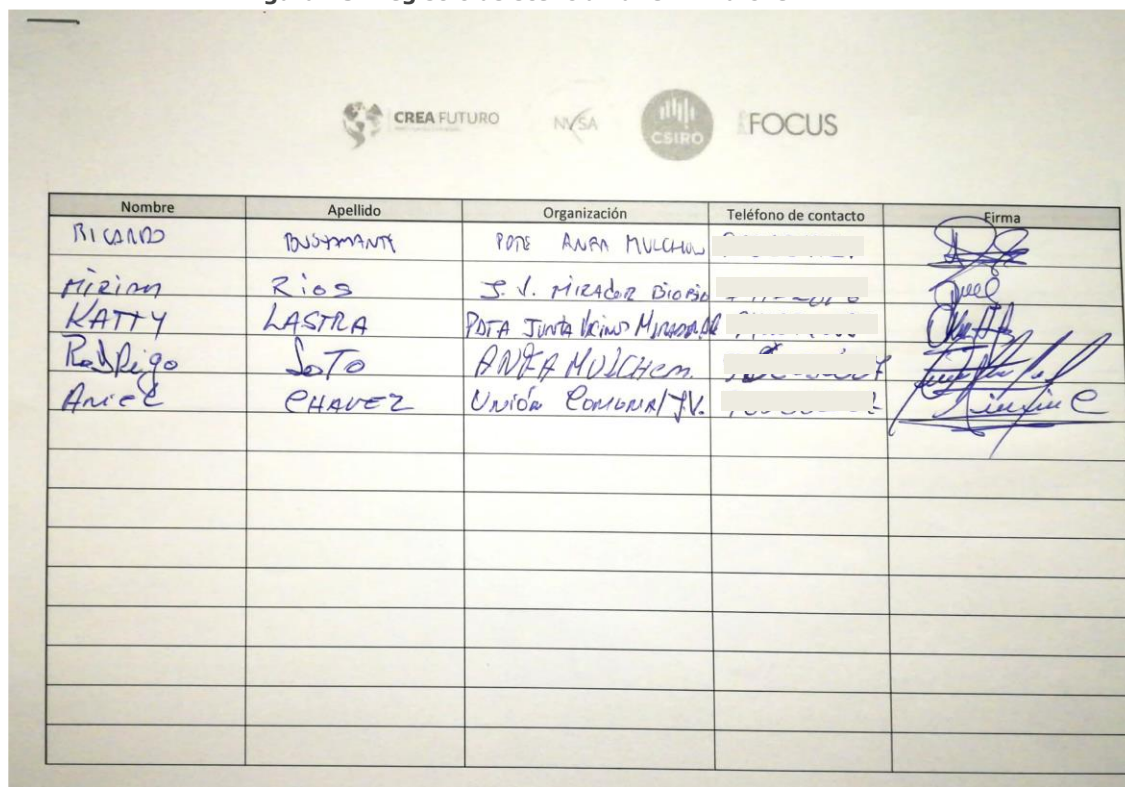 CREA FUTURO
NVSA
CSIRO
FOCUS
Nombre Apellido Organización Teléfono de contacto Firma
RICARDO BUSTAMANTE PDTE ANFA MULCHEN
Miriam Rios J. V. MIRADOR BIOBIO
KATTY LASTRA PDTA JUNTA Vecinos MIRADOR
Rodrigo SoTo ANFA MULCHen
Ariel CHAVEZ Unión Comunal JV.